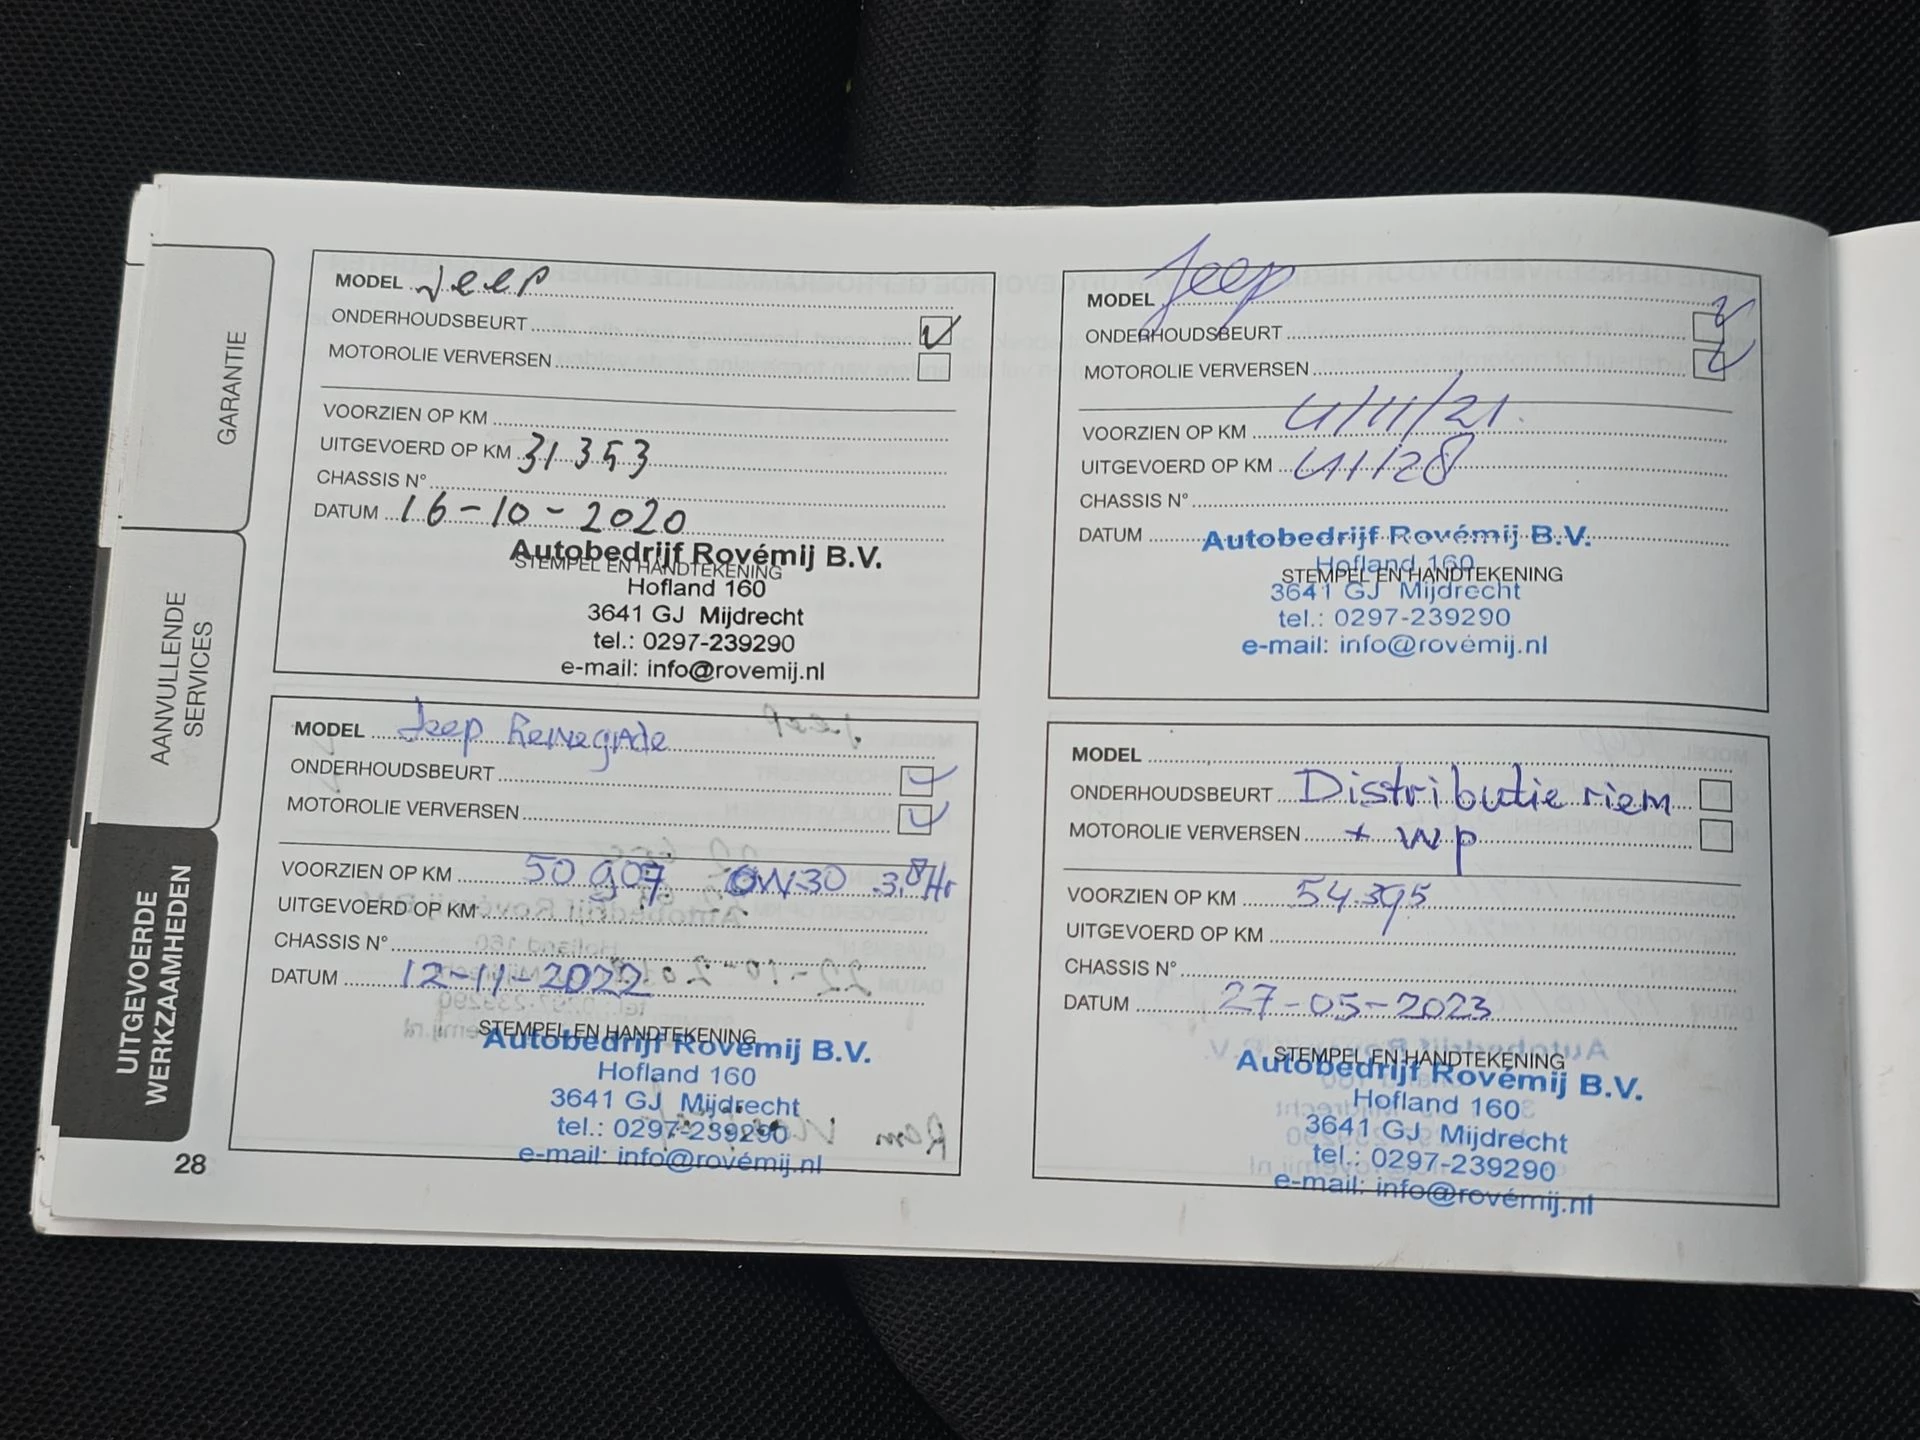 GARANTIE
AANVULLENDE
SERVICES
UITGEVOERDE
WERKZAAMHEDEN
28
MODEL Jeep
ONDERHOUDSBEURT
MOTOROLIE VERVERSEN
VOORZIEN OP KM
UITGEVOERD OP KM 31353
CHASSIS N°
DATUM 16-10-2020
STEMPEL EN HANDTEKENING
Autobedrijf Rovémij B.V.
Hofland 160
3641 GJ Mijdrecht
tel.: 0297-239290
e-mail: info@rovemij.nl
MODEL Jeep
ONDERHOUDSBEURT
MOTOROLIE VERVERSEN
VOORZIEN OP KM 4/11/21
UITGEVOERD OP KM 41128
CHASSIS N°
DATUM
STEMPEL EN HANDTEKENING
Autobedrijf Rovémij B.V.
Hofland 160
3641 GJ Mijdrecht
tel.: 0297-239290
e-mail: info@rovémij.nl
MODEL Jeep Renegade
ONDERHOUDSBEURT
MOTOROLIE VERVERSEN
VOORZIEN OP KM 50907 0W30 3.8ltr
UITGEVOERD OP KM
CHASSIS N°
DATUM 12-11-2022
STEMPEL EN HANDTEKENING
Autobedrijf Rovémij B.V.
Hofland 160
3641 GJ Mijdrecht
tel.: 0297-239290
e-mail: info@rovémij.nl
MODEL
ONDERHOUDSBEURT Distributie riem
MOTOROLIE VERVERSEN + wp
VOORZIEN OP KM 54.395
UITGEVOERD OP KM
CHASSIS N°
DATUM 27-05-2023
STEMPEL EN HANDTEKENING
Autobedrijf Rovémij B.V.
Hofland 160
3641 GJ Mijdrecht
tel.: 0297-239290
e-mail: info@rovémij.nl